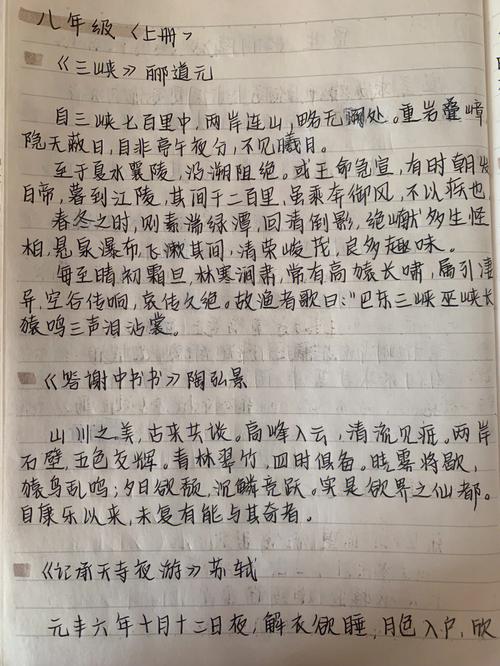 八年级〈上册〉
《三峡》郦道元
自三峡七百里中，两岸连山，略无阙处。重岩叠嶂，
隐天蔽日，自非亭午夜分，不见曦月。
至于夏水襄陵，沿溯阻绝。或王命急宣，有时朝发
白帝，暮到江陵，其间千二百里，虽乘奔御风，不以疾也
春冬之时，则素湍绿潭，回清倒影，绝巘多生怪
柏，悬泉瀑布，飞漱其间，清荣峻茂，良多趣味。
每至晴初霜旦，林寒涧肃，常有高猿长啸，属引凄
异，空谷传响，哀转久绝。故渔者歌曰："巴东三峡巫峡长
猿鸣三声泪沾裳。
《答谢中书书》陶弘景
山川之美，古来共谈。高峰入云，清流见底。两岸
石壁，五色交辉。青林翠竹，四时俱备。晓雾将歇，
猿鸟乱鸣；夕日欲颓，沉鳞竞跃。实是欲界之仙都。
自康乐以来，未复有能与其奇者。
《记承天寺夜游》苏轼
元丰六年十月十二日夜，解衣欲睡，月色入户，欣